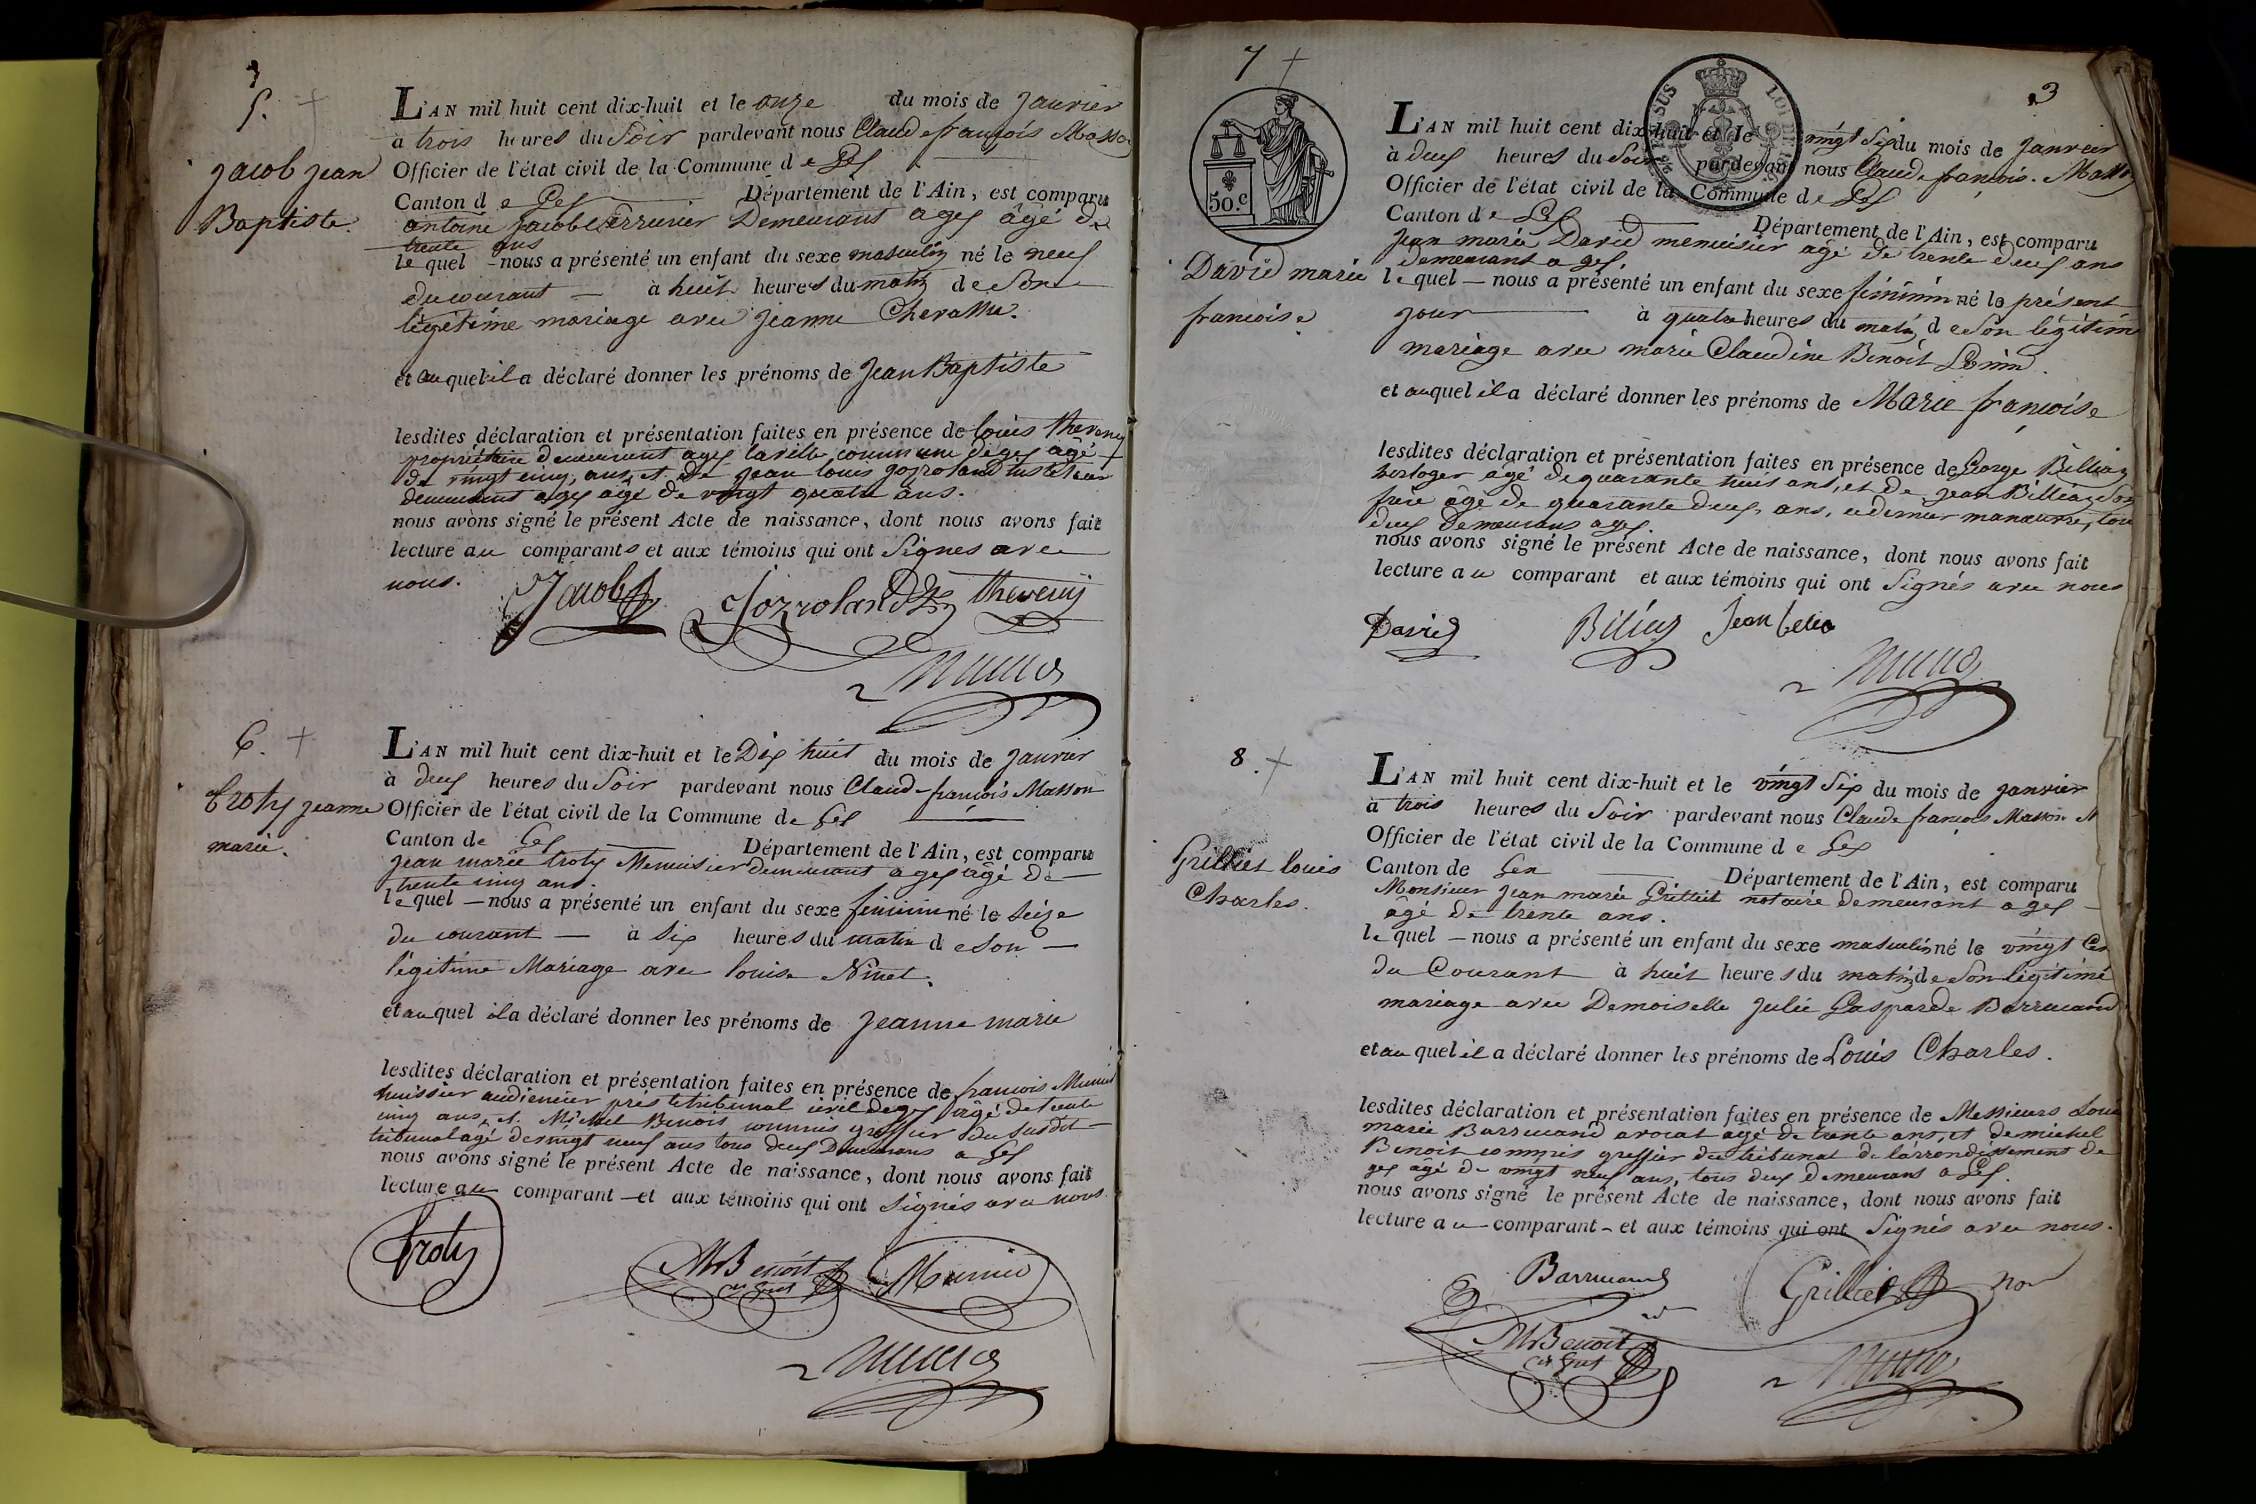 5.
Jacob Jean
Baptiste.
L'AN mil huit cent dix-huit et le onze du mois de Janvier
à trois heures du Soir pardevant nous Claude françois Masson
Officier de l'état civil de la Commune de Gex
Canton de Gex Département de l'Ain, est comparu
antoine Jacob Serrurier Demeurant a gex âgé de
trente ans
lequel nous a présenté un enfant du sexe masculin né le neuf
du courant à huit heures du matin de Son
légitime mariage avec Jeanne
et auquel il a déclaré donner les prénoms de Jean Baptiste
lesdites déclaration et présentation faites en présence de louis thevenin
propriétaire demeurant a gex la ville, commune de gex âgé
de vingt cinq ans, et de Jean louis gozroland
demeurant a gex âgé de vingt quatre ans.
nous avons signé le présent Acte de naissance, dont nous avons fait
lecture au comparants et aux témoins qui ont Signés avec
nous.
Jacob Jozroland thevenin
6.
troty jeanne
marie.
L'AN mil huit cent dix-huit et le Dix huit du mois de Janvier
à deux heures du Soir pardevant nous Claude françois Masson
Officier de l'état civil de la Commune de Gex
Canton de Gex Département de l'Ain, est comparu
Jean marie troty Menuisier demeurant a gex âgé de
trente cinq ans.
lequel nous a présenté un enfant du sexe féminin né le Seize
du courant à Six heures du matin de son
légitime Mariage avec louise Ninet.
et auquel il a déclaré donner les prénoms de Jeanne marie
lesdites déclaration et présentation faites en présence de francois Munier
huissier audiencier près le tribunal civil de gex âgé de trente
cinq ans, et Michel Benoit commis greffier du susdit
tribunal agé de vingt neuf ans tous deux Demeurans a Gex
nous avons signé le présent Acte de naissance, dont nous avons fait
lecture au comparant et aux témoins qui ont signés avec nous
troty MBenoit Munier
7
3
50.c
David marie
francoise
L'AN mil huit cent dix-huit et le vingt Six du mois de Janvier
à deux heures du Soir pardevant nous Claude françois Masson
Officier de l'état civil de la Commune de Gex
Canton de Gex Département de l'Ain, est comparu
Jean marie David menuisier âgé de trente deux ans
demeurant a gex.
lequel nous a présenté un enfant du sexe féminin né le présent
jour à quatre heures du matin de Son légitime
mariage avec marie Claudine Benoit
et auquel il a déclaré donner les prénoms de Marie françoise
lesdites déclaration et présentation faites en présence de George Billiaz
horloger âgé de quarante huit ans, et de Jean Billiaz Son
frère âgé de quarante deux ans, ce dernier manœuvre, tous
deux demeurans a gex.
nous avons signé le présent Acte de naissance, dont nous avons fait
lecture au comparant et aux témoins qui ont Signés avec nous
David Jean
8.
Grilliet louis
Charles.
L'AN mil huit cent dix-huit et le vingt Six du mois de janvier
à trois heures du Soir pardevant nous Claude françois Masson
Officier de l'état civil de la Commune de Gex
Canton de Gex Département de l'Ain, est comparu
Monsieur Jean marie Grilliet notaire demeurant a gex
âgé de trente ans.
lequel nous a présenté un enfant du sexe masculin né le vingt
du Courant à huit heures du matin de Son légitime
mariage avec Demoiselle Julie Gasparde Barrucand
et auquel il a déclaré donner les prénoms de Louis Charles.
lesdites déclaration et présentation faites en présence de Messieurs Louis
marie Barrucand avocat âgé de trente ans, et de michel
Benoit commis greffier du tribunal de l'arrondissement de
gex âgé de vingt neuf ans, tous deux demeurans a Gex.
nous avons signé le présent Acte de naissance, dont nous avons fait
lecture au comparant et aux témoins qui ont Signés avec nous.
Barrucand Grilliet
MBenoit